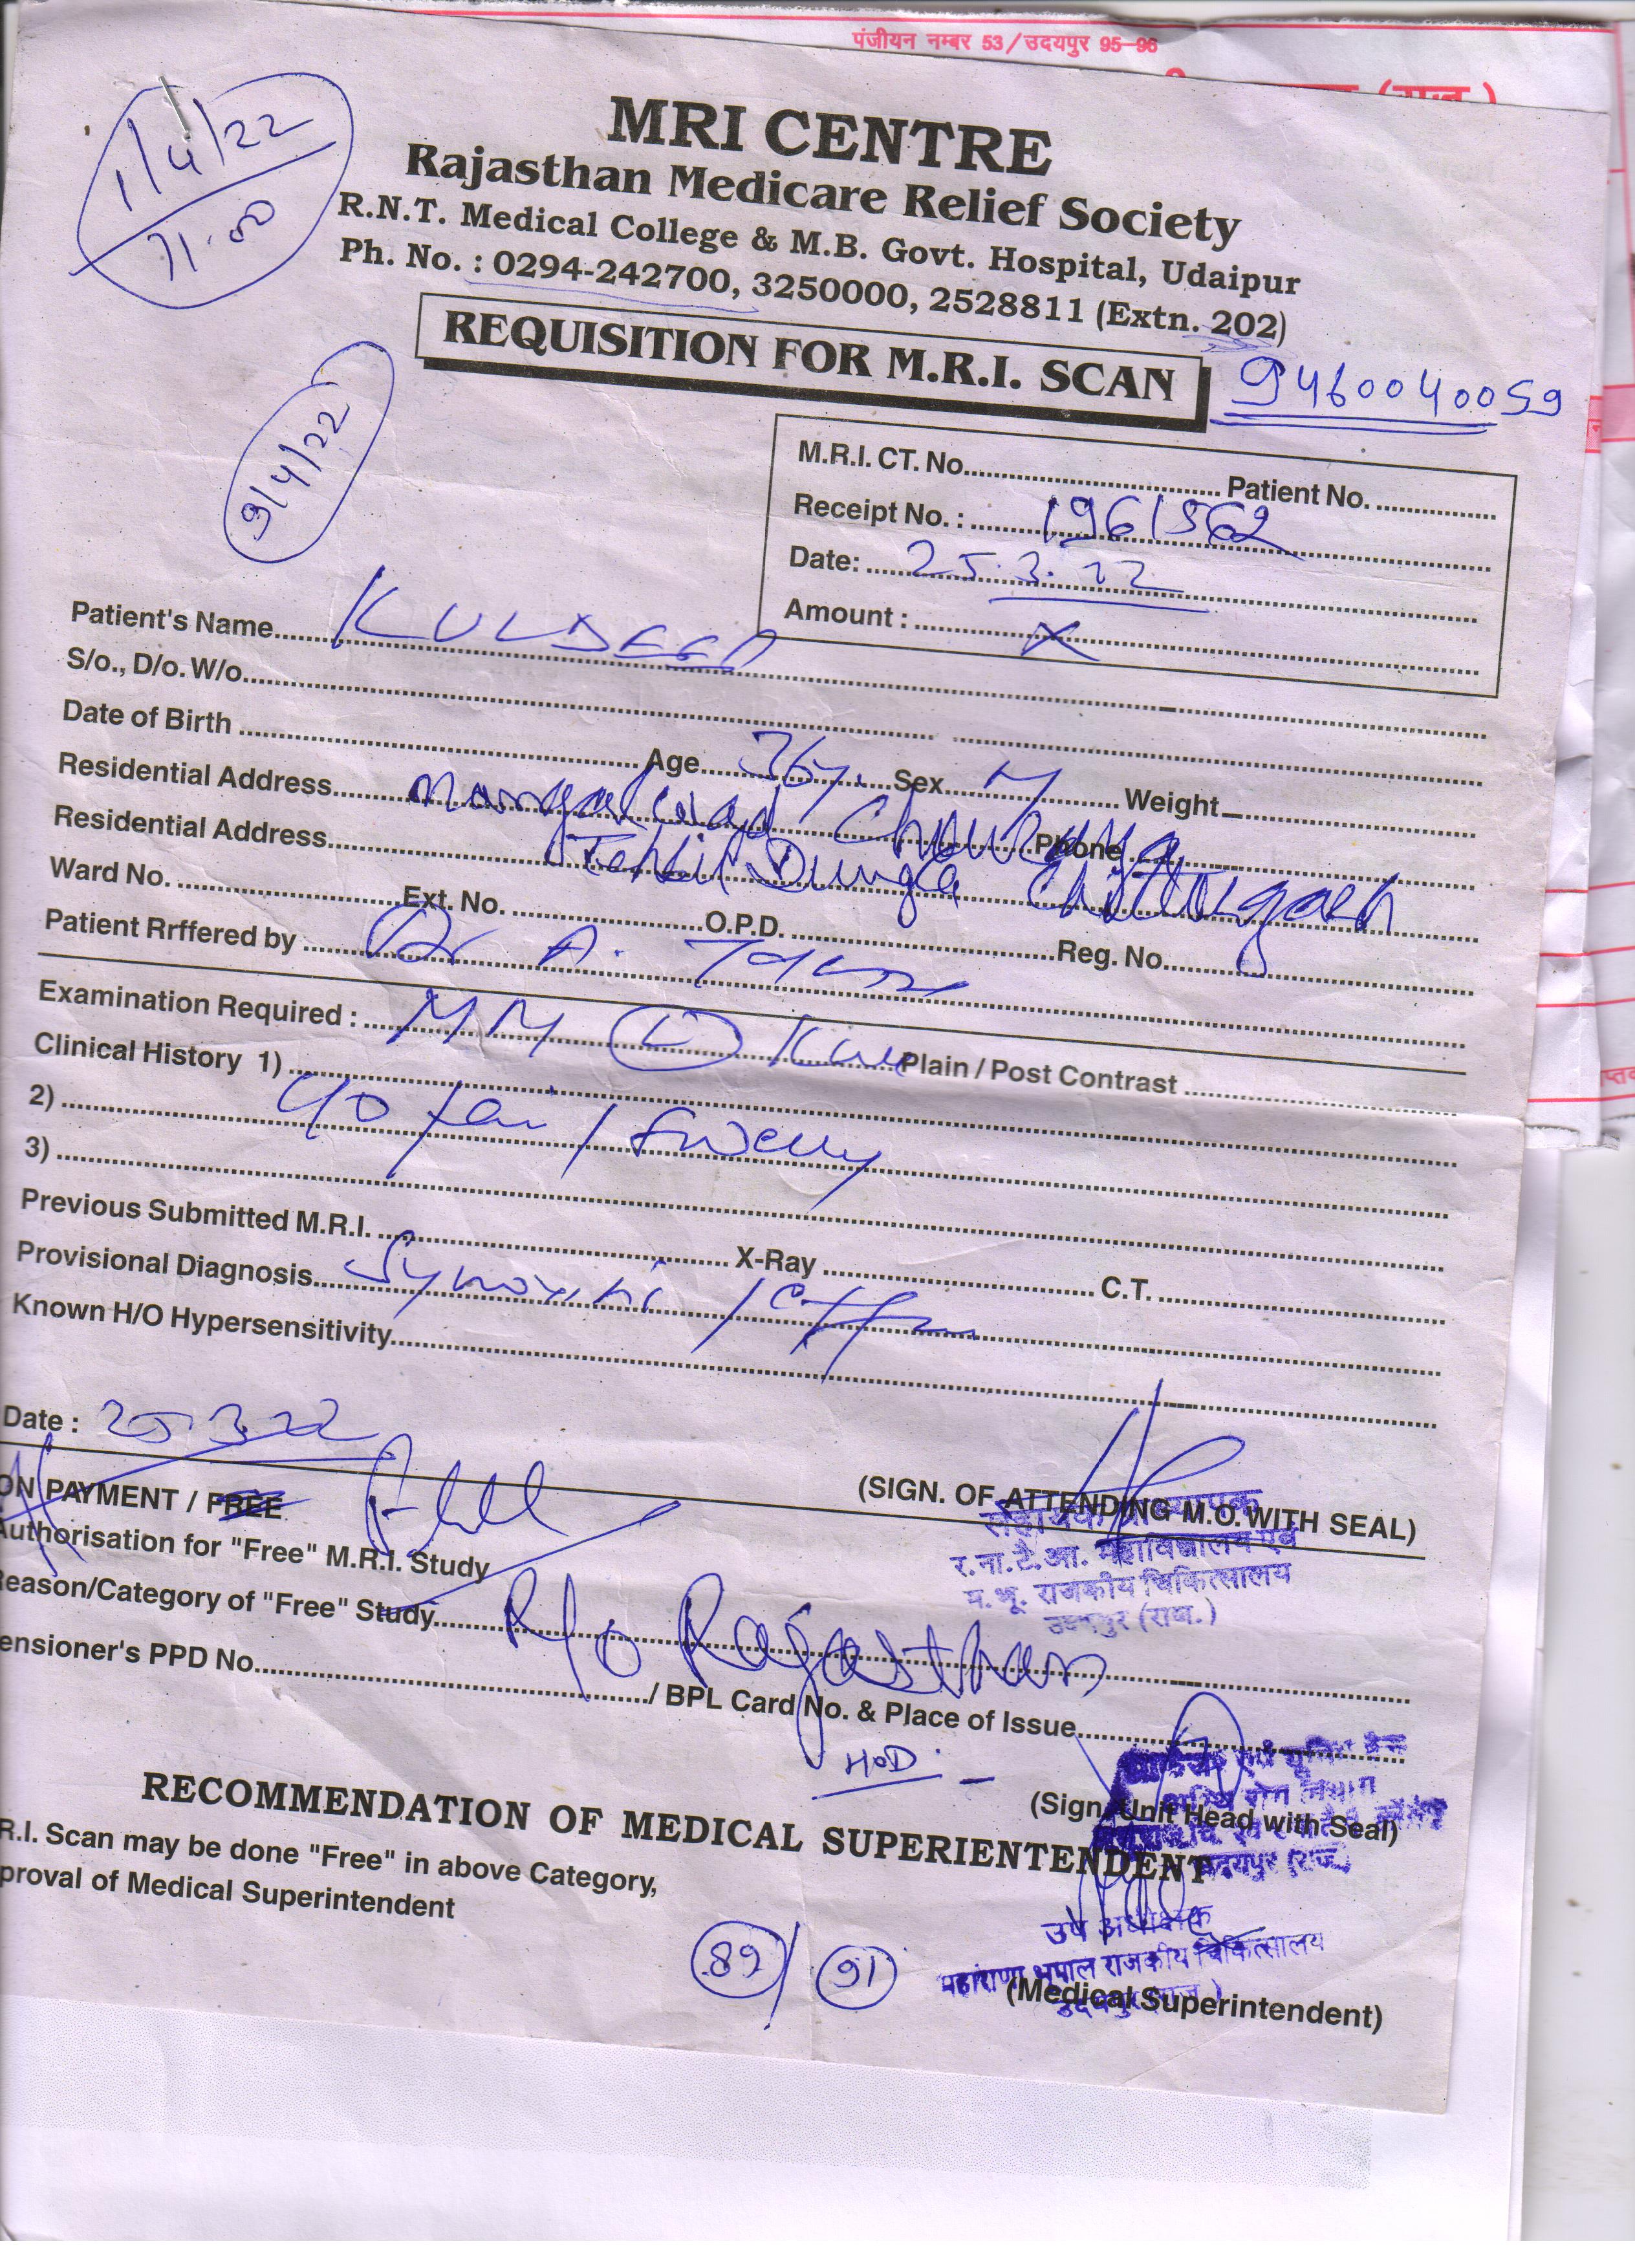 पंजीयन नम्बर 53/उदयपुर 95-96
1/4/22
11.00
MRI CENTRE
Rajasthan Medicare Relief Society
R.N.T. Medical College & M.B. Govt. Hospital, Udaipur
Ph. No. : 0294-242700, 3250000, 2528811 (Extn. 202)
REQUISITION FOR M.R.I. SCAN
9460040059
9/4/22
M.R.I. CT. No. Patient No.
Receipt No. : 1961562
Date: 25.3.22
Amount : X
Patient's Name KULDEEP
S/o., D/o. W/o
Date of Birth Age 36y. Sex M Weight
Residential Address mangalwad Phone
Residential Address Tehsil Dungla Chittorgarh
Ward No. Ext. No. O.P.D. Reg. No.
Patient Rrffered by Dr A.
Examination Required : (L) Knee Plain / Post Contrast
Clinical History 1)
2) C/o pain / swelling
3)
Previous Submitted M.R.I. X-Ray C.T.
Provisional Diagnosis Synovitis /
Known H/O Hypersensitivity
Date : 25.3.22
(SIGN. OF ATTENDING M.O. WITH SEAL)
ON PAYMENT / FREE
Authorisation for "Free" M.R.I. Study
र.ना.टै.आ. महाविद्यालय एवं
म.भू. राजकीय चिकित्सालय
उदयपुर (राज.)
Reason/Category of "Free" Study R/o Rajasthan
ensioner's PPD No. / BPL Card No. & Place of Issue
HOD
(Sign. Unit Head with Seal)
उदयपुर (राज.)
RECOMMENDATION OF MEDICAL SUPERIENTENDENT
R.I. Scan may be done "Free" in above Category,
proval of Medical Superintendent
89 / 91
उप अधीक्षक
महाराणा भूपाल राजकीय चिकित्सालय
उदयपुर (राज.)
(Medical Superintendent)